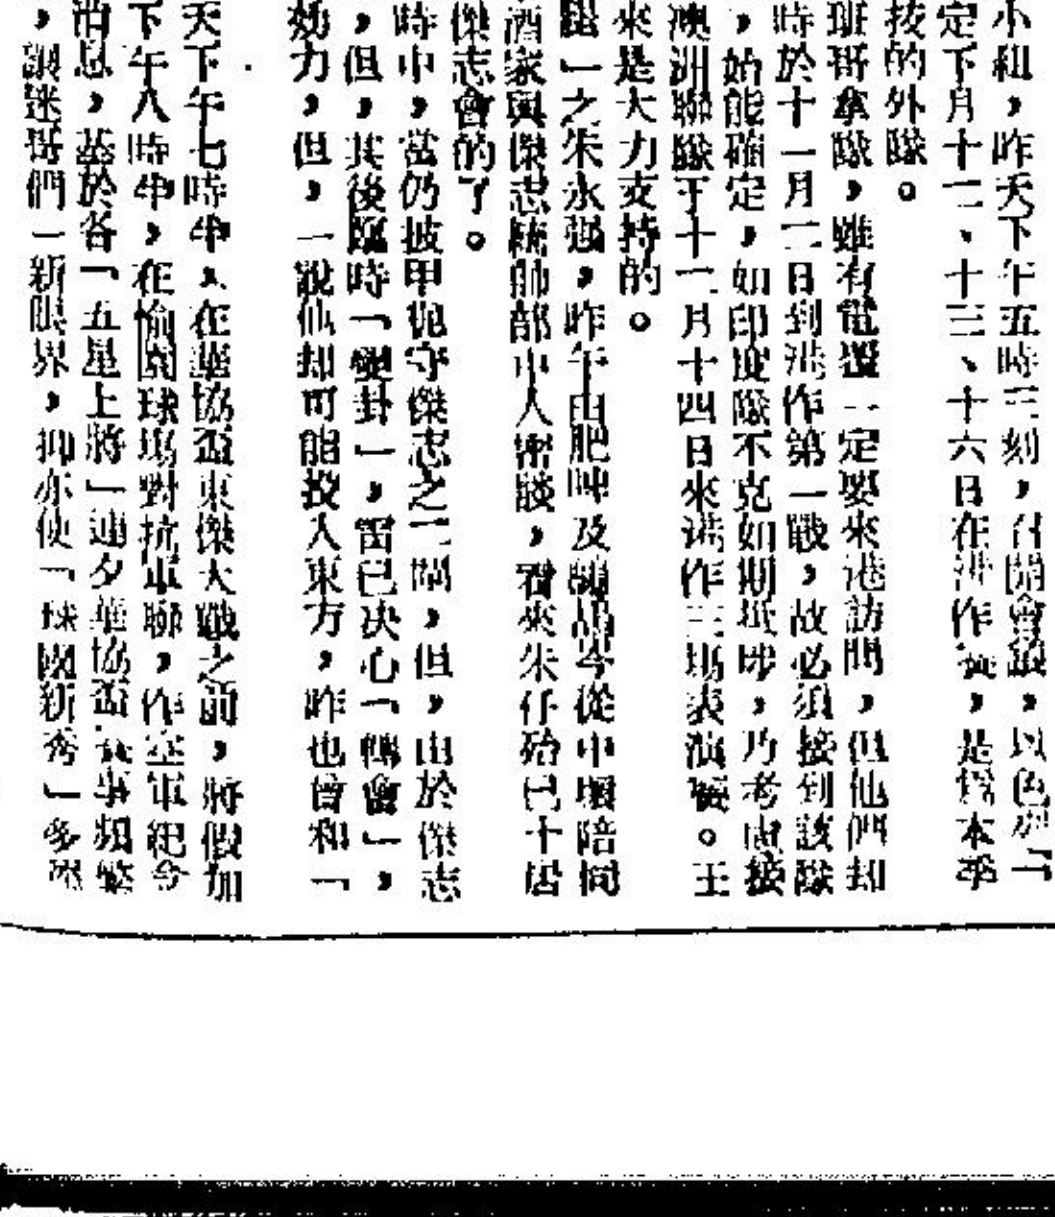 小組，昨天下午五時三刻，召開會議，以色列「
定下月十二、十三、十六日在港作賽，是爲本季
技的外隊。
班哥拿隊，雖有電覆一定要來港訪問，但他們却
時於十一月二日到港作第一戰，故必須接到該隊
，始能確定，如印度隊不克如期抵埗，乃考慮接
澳洲聯隊于十一月十四日來港作三塲表演賽。王
來是大力支持的。
」之朱永强，昨午由肥 及 岑從中環陪同
酒家與傑志統帥部中人密談，看來朱仔殆已十居
傑志會的了。
時中，當仍披甲把守傑志之一關，但，由於傑志
，但，其後臨時「變卦」，雷已决心「轉會」，
効力，但，一說他却可能投入東方，昨也曾和「
天下午七時半，在華協盃東傑大戰之前，將假加
下午八時半，在愉園球塲對抗軍聯，作空軍紀念
消息，基於各「五星上將」連夕華協盃賽事頻繁
，讓迷哥們一新眼界，抑亦使「球國新秀」多